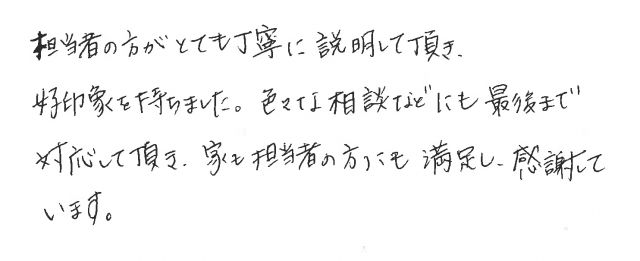 担当者の方がとても丁寧に説明して頂き、
好印象を持ちました。色々な相談などにも最後まで
対応して頂き、家も担当者の方にも満足し、感謝して
います。